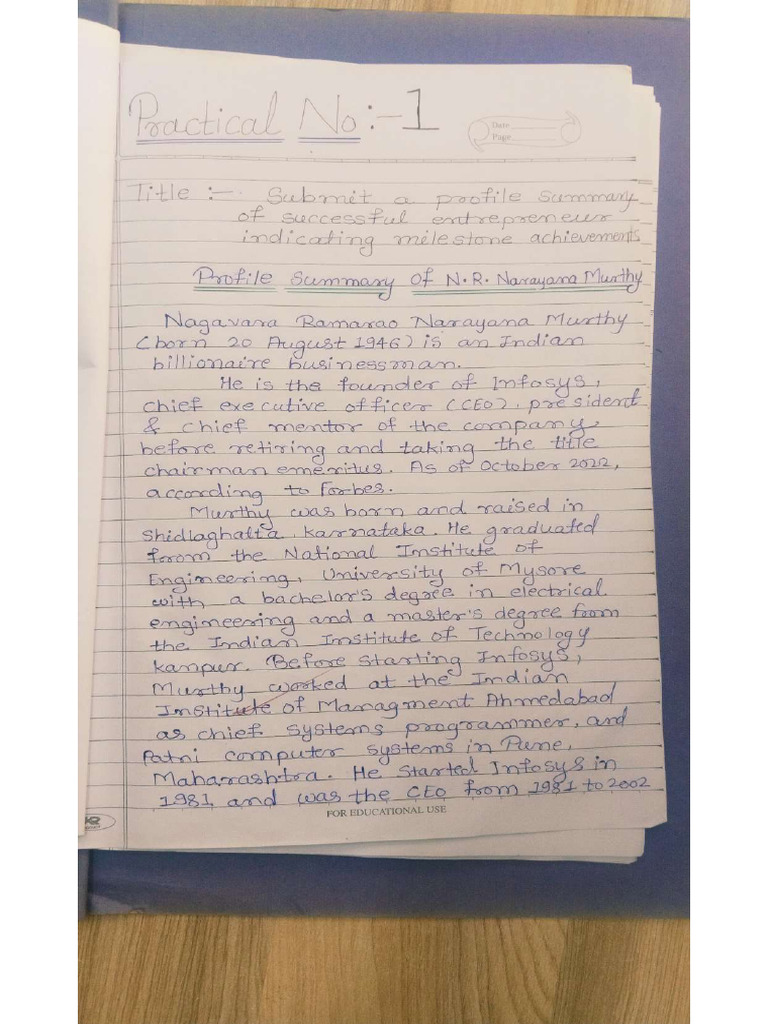 Practical No:-1
Date
Page
Title :- Submit a profile summary
of successful entrepreneur
indicating milestone achievements
Profile Summary of N.R. Narayana Murthy
Nagavara Ramarao Narayana Murthy
(born 20 August 1946) is an Indian
billionaire businessman.
He is the founder of Infosys,
chief executive officer (CEO), president
& chief mentor of the company
before retiring and taking the title
chairman emeritus. As of October 2022,
according to Forbes.
Murthy was born and raised in
Shidlaghatta, Karnataka. He graduated
from the National Institute of
Engineering, University of Mysore
with a bachelor's degree in electrical
engineering and a master's degree from
the Indian Institute of Technology
Kanpur. Before starting Infosys,
Murthy worked at the Indian
Institute of Managment Ahmedabad
as chief systems programmer, and
Patni computer systems in Pune,
Maharashtra. He started Infosys in
1981, and was the CEO from 1981 to 2002
FOR EDUCATIONAL USE